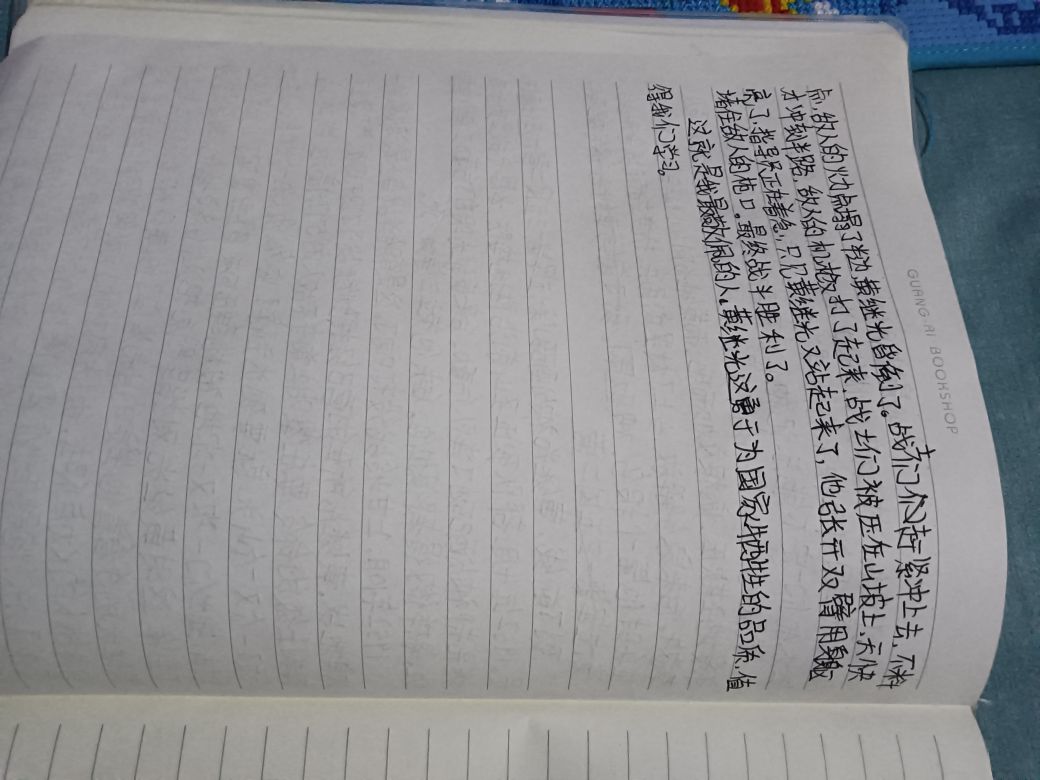 GUANG AI BOOKSHOP
点,敌人的火力点塌了半边,黄继光昏倒了。战士们赶紧冲上去,不料
才冲到半路,敌人的机枪打了起来,战士们被压在山坡上,天快
亮了,指导员正在着急,只见黄继光又站起来了,他张开双臂用胸膛
堵住敌人的枪口。最终战斗胜利了。
这就是我最敬佩的人。黄继光这勇于为国家牺牲的品质,值
得我们学习。